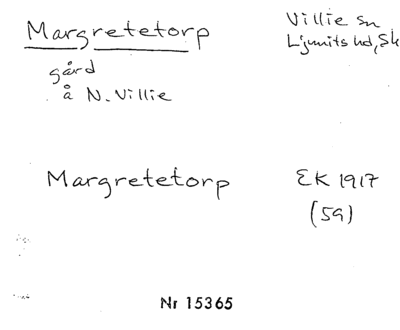 Margretetorp Villie sn
Ljunits hd, Sk
gård
å N. Villie
Margretetorp EK 1917
(59)
Nr 15365